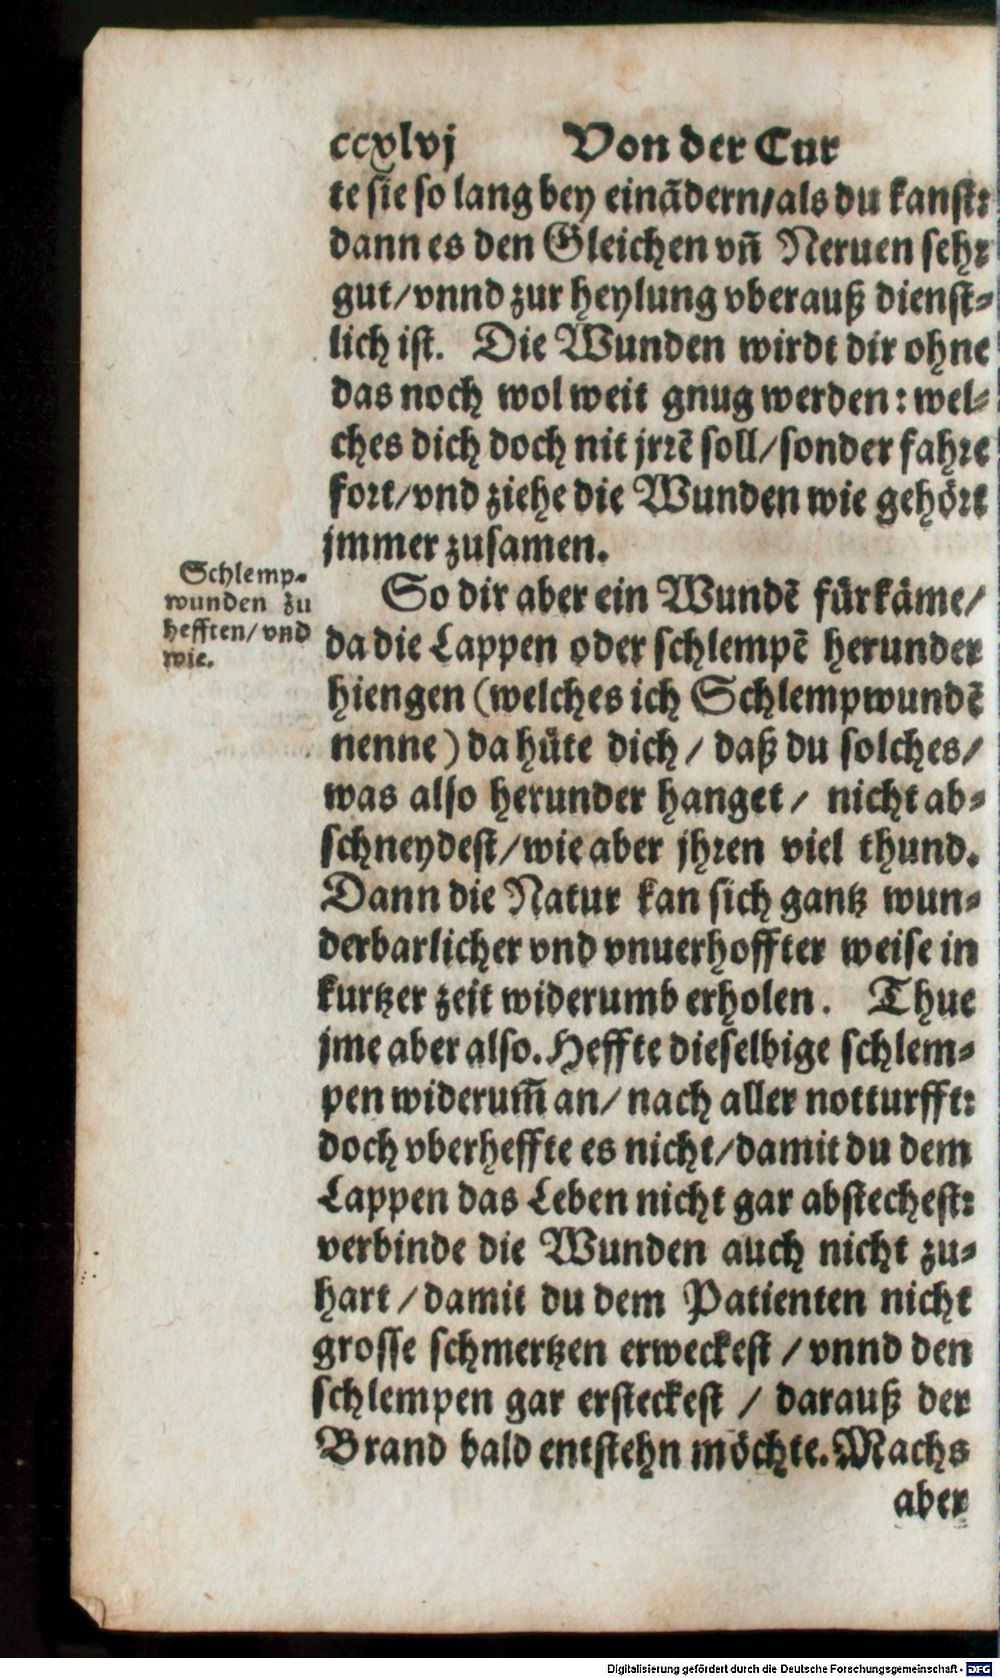 ccxlvj Von der Cur
te sie so lang bey einãdern/als du kanst:
dann es den Gleichen vñ Neruen sehr
gut/vnnd zur heylung vberauß dienst-
lich ist. Die Wunden wirdt dir ohne
das noch wol weit gnug werden: wel-
ches dich doch nit jrrẽ soll/sonder fahre
fort/vnd ziehe die Wunden wie gehört
jmmer zusamen.
Schlemp-
wunden zu
hefften/vnd
wie.
So dir aber ein Wundẽ fürkäme/
da die Lappen oder schlempẽ herunder
hiengen (welches ich Schlempwundẽ
nenne) da hüte dich/ daß du solches/
was also herunder hanget/ nicht ab-
schneydest/wie aber jhren viel thund.
Dann die Natur kan sich gantz wun-
derbarlicher vnd vnuerhoffter weise in
kurtzer zeit widerumb erholen. Thue
jme aber also. Heffte dieselbige schlem-
pen widerum̃ an/ nach aller notturfft:
doch vberheffte es nicht/damit du dem
Lappen das Leben nicht gar abstechest:
verbinde die Wunden auch nicht zu-
hart/damit du dem Patienten nicht
grosse schmertzen erweckest/vnnd den
schlempen gar ersteckest/ darauß der
Brand bald entstehn möchte. Machs
aber
Digitalisierung gefördert durch die Deutsche Forschungsgemeinschaft - DFG